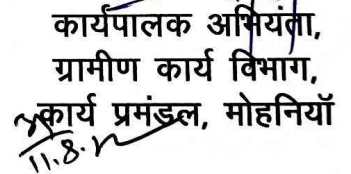 कार्यपालक अभियंता,
ग्रामीण कार्य विभाग,
कार्य प्रमंडल, मोहनियाॅ
11.8.